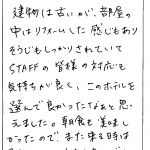 建物は古いが、部屋の
中はリフォームした感じもあり
そうじもしっかりされていて
STAFFの皆様の対応も
気持ちが良く、このホテルを
選んで良かったなぁと思
えました。朝食も美味し
かったので、また来る時は